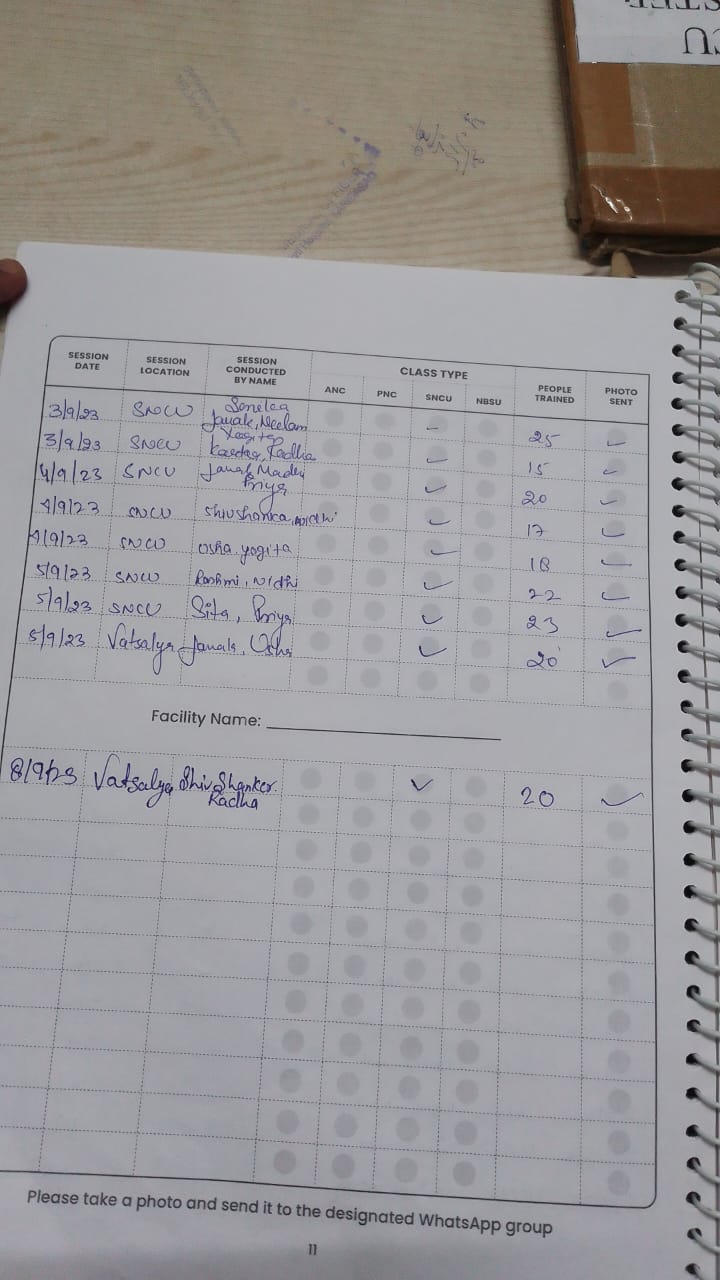 CU
SESSION DATE SESSION LOCATION SESSION CONDUCTED BY NAME CLASS TYPE PEOPLE TRAINED PHOTO SENT
ANC PNC SNCU NBSU
3/9/23 SNCU Janak, Neelam 25
3/9/23 SNCU Radha 15
4/9/23 SNCU Janak Priya 20
4/9/23 SNCU Shivshanka, nidhi 17
4/9/23 SNCU Usha yogita 18
5/9/23 SNCU Rashmi, Nidhi 22
5/9/23 SNCU Sita, Priya 23
5/9/23 Vatsalya Janak, Usha 20
Facility Name:
8/9/23 Vatsalya Shiv Shanker. Radha 20
Please take a photo and send it to the designated WhatsApp group
11